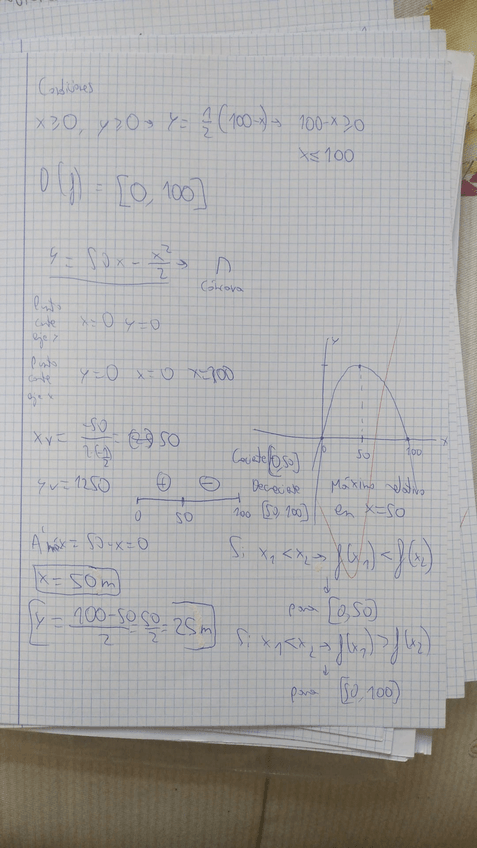 Condiciones
x≥0, y≥0 → y = 1/2 (100-x) → 100-x≥0
x≤100
D(f) = [0, 100]
y = 50x - x²/2 → ∩
Cóncava
Punto corte eje y x=0 y=0
Punto corte eje x y=0 x=0 x=100
y
x
0 50 100
xv = -50/2(-1/2) = 50
yv = 1250
Creciente [0,50]
Decreciente [50,100]
+ -
0 50 100
Máximo relativo
en x=50
A'máx = 50-x=0
x = 50m
y = 100-50/2 = 50/2 = 25m
Si x1 < x2 → f(x1) < f(x2)
↓
para [0,50)
Si x1 < x2 → f(x1) > f(x2)
↓
para (50,100)